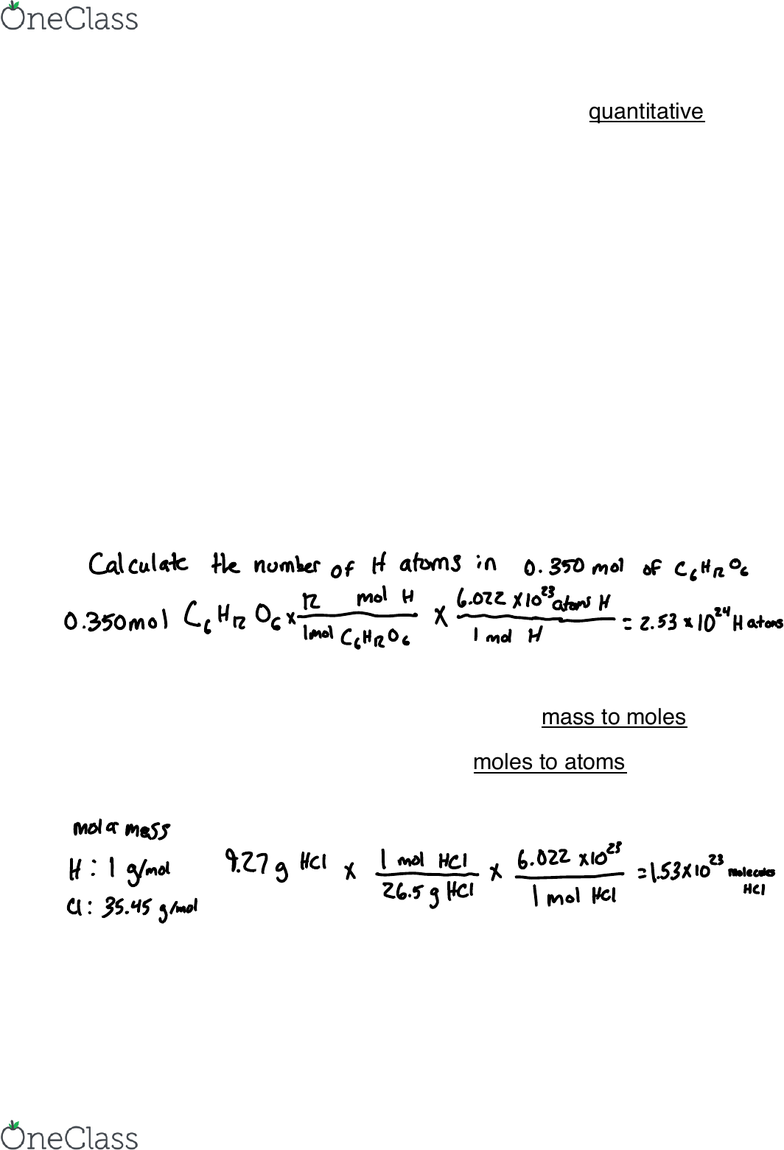 OneClass
quantitative
Calculate the number of H atoms in 0.350 mol of C₆H₁₂O₆
0.350mol C₆H₁₂O₆ x 12 mol H / 1mol C₆H₁₂O₆ x 6.022 x10²³ atoms H / 1 mol H = 2.53 x 10²⁴ H atoms
mass to moles
moles to atoms
molar mass
H : 1 g/mol 9.27 g HCl x 1 mol HCl / 26.5 g HCl x 6.022 x10²³ / 1 mol HCl = 1.53x10²³ molecules HCl
Cl : 35.45 g/mol
OneClass